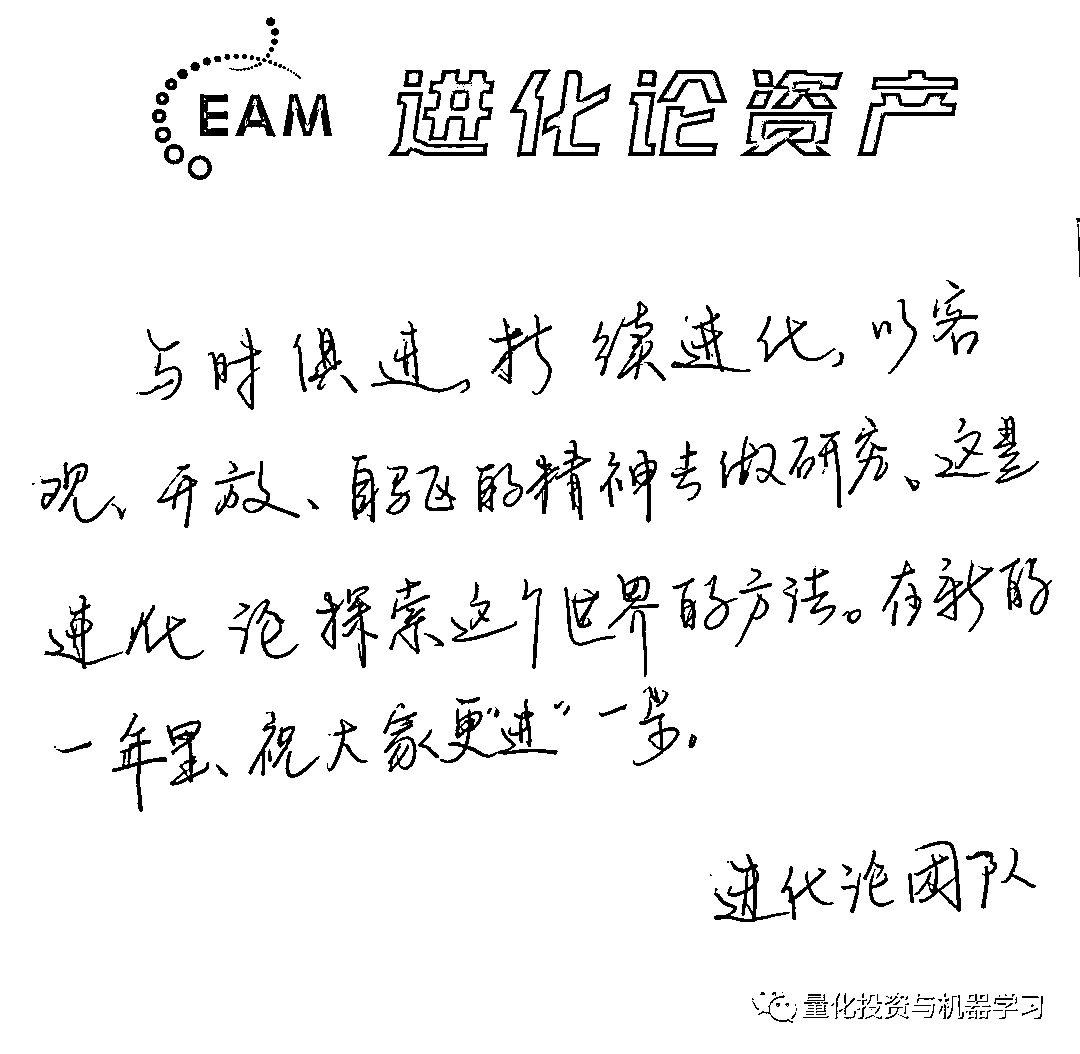 EAM 进化论资产
与时俱进，持续进化，以客
观、开放、自驱的精神去做研究。这是
进化论探索这个世界的方法。在新的
一年里、祝大家更“进”一步。
进化论团队
量化投资与机器学习